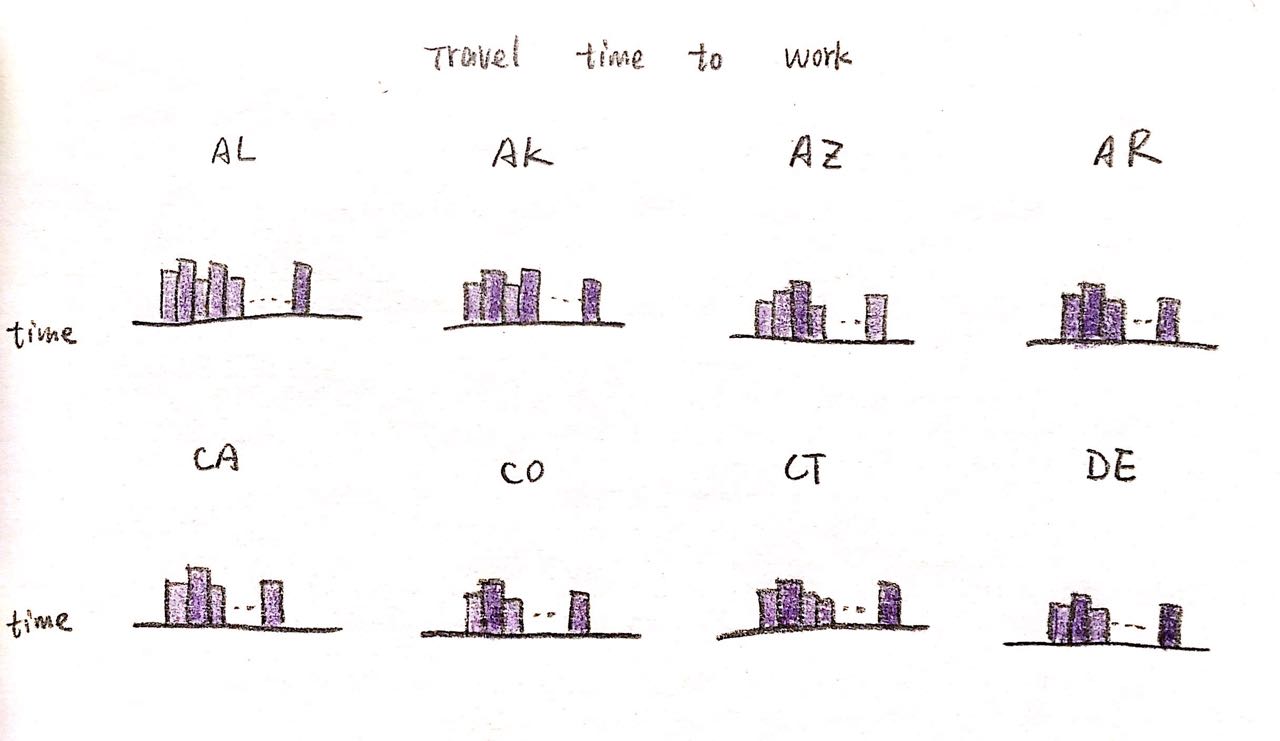 Travel time to work
AL AK AZ AR
time
CA CO CT DE
time